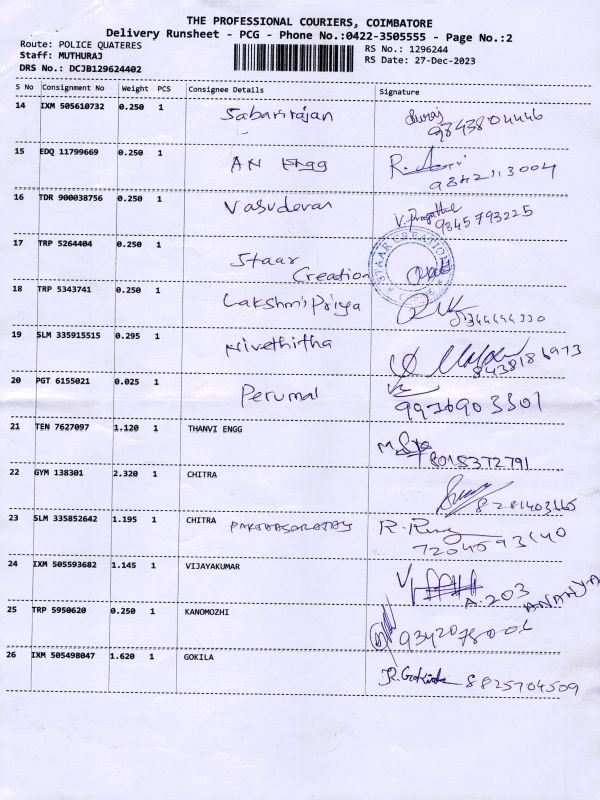 THE PROFESSIONAL COURIERS, COIMBATORE
Delivery Runsheet - PCG - Phone No.:0422-3505555 - Page No.:2
Route: POLICE QUATERES
Staff: MUTHURAJ
DRS No.: DCJB129624402
RS No.: 1296244
RS Date: 27-Dec-2023
S No Consignment No Weight PCS Consignee Details Signature
14 IXM 505610732 0.250 1 Sabarirajan
9843804446
15 EDQ 11799669 0.250 1 AN Engg
9842113004
16 TDR 900038756 0.250 1 Vasudevan
9345793225
17 TRP 5264404 0.250 1 Staar
Creation
18 TRP 5343741 0.250 1 Lakshmi Priya
19 SLM 335915515 0.295 1 Nivethitha
8438186973
20 PGT 6155021 0.025 1 Perumal
21 TEN 7627097 1.120 1 THANVI ENGG
8015372791
22 GYM 138301 2.320 1 CHITRA
23 SLM 335852642 1.195 1 CHITRA
24 IXM 505593682 1.145 1 VIJAYAKUMAR
A.203
ANANYA
25 TRP 5950620 0.250 1 KANOMOZHI
26 IXM 505498047 1.620 1 GOKILA
8825704509